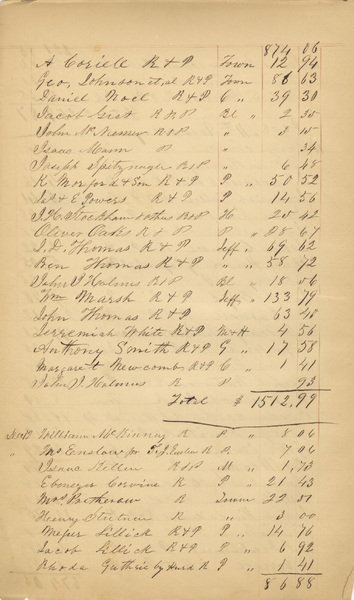 874 06
A Coriell R & P Town 12 94
Geo, Johnson et, al R & P Town 86 63
Daniel Noel R & P C " 39 30
Jacob Gist R & P Bl " 2
John McNemer R & P "
Isaac Mann P " 34
Joseph R & P " 6 48
K Morford & Son R & P P " 50 52
& E Powers R & P P " 14 56
J. H. Stockham & others R & P H " 20 42
Oliver Oakes R & P P " 67
S. D. Thomas R & P Jeff " 69 62
Ben Thomas R & P " " 58 72
John V Holmes R & P Bl " 18 06
Wm Marsh R & P Jeff " 133 79
John Thomas R & P 63 40
Jerremiah White R & P M & H " 4 56
Anthony Smith R & P G " 17 58
Margaret Newcomb R & P C " 1 41
John V Holmes R P 93
Total $ 1512,99
William McKinney R P " 8 06
" for R R " 7 06
Isaac R & P M " 1,73
Ebenezer Corwine R P " 21 43
Mrs R Town 22 01
Henry R " 3 00
Lillick R & P P " 14 76
Jacob Lillick R & P " 6 92
Rhoda Guthrie by R P " 1 41
86 88